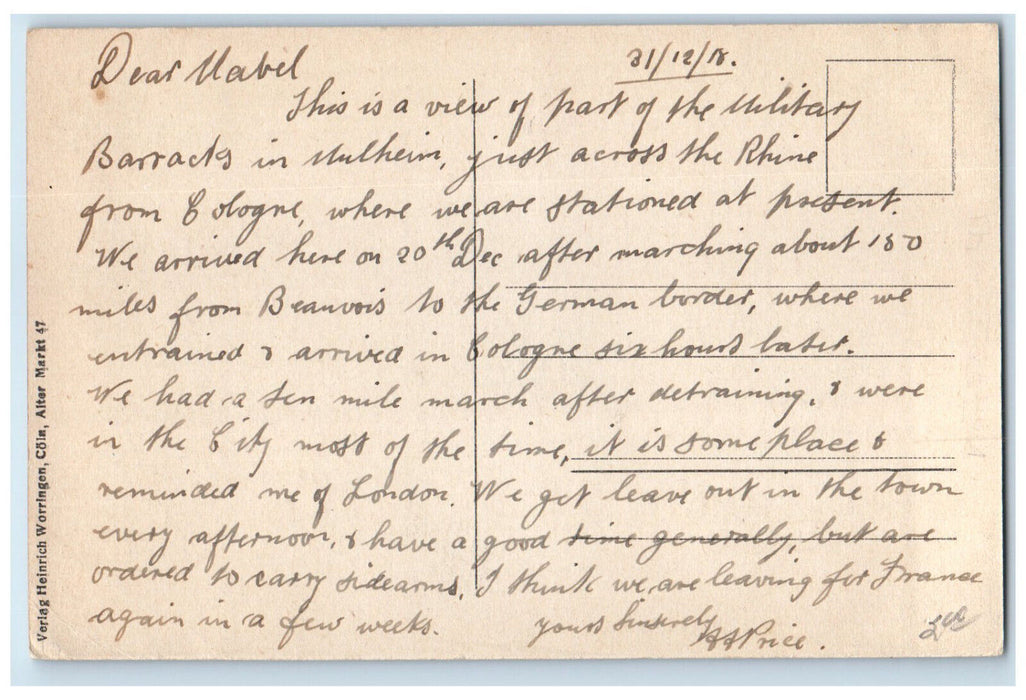 31/12/18.
Dear Mabel
This is a view of part of the Military
Barracks in Mulheim, just across the Rhine
from Cologne, where we are stationed at present.
We arrived here on 20th Dec after marching about 150
miles from Beauvois to the German border, where we
entrained & arrived in Cologne six hours later.
We had a ten mile march after detraining, & were
in the City most of the time, it is some place &
reminded me of London. We get leave out in the town
every afternoon, & have a good time generally, but are
ordered to carry sidearms. I think we are leaving for France
again in a few weeks.
Yours Sincerely
Price.
Verlag Heinrich Worringen, Cöln, Alter Markt 47